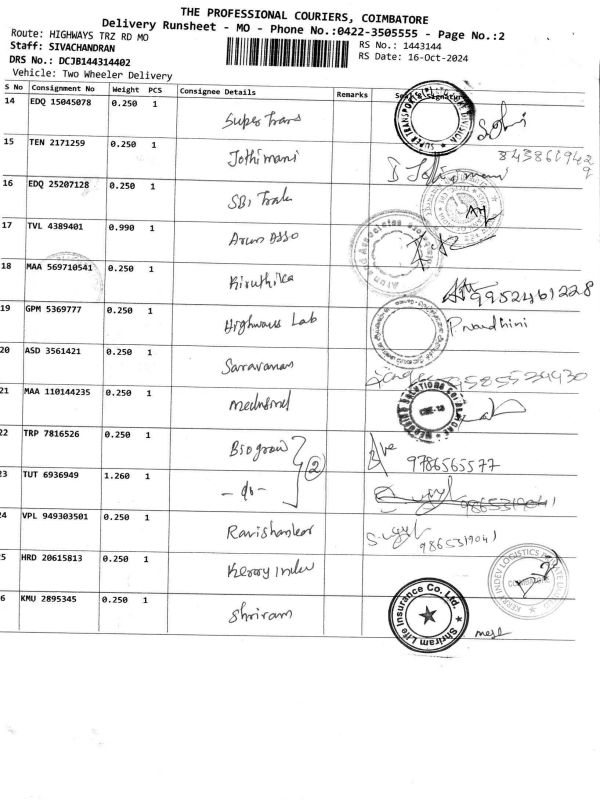 THE PROFESSIONAL COURIERS, COIMBATORE
Delivery Runsheet - MO - Phone No.:0422-3505555 - Page No.:2
Route: HIGHWAYS TRZ RD MO
Staff: SIVACHANDRAN
DRS No.: DCJB144314402
Vehicle: Two Wheeler Delivery
RS No.: 1443144
RS Date: 16-Oct-2024
S No Consignment No Weight PCS Consignee Details Remarks
14 EDQ 15045078 0.250 1 Super Trans
15 TEN 2171259 0.250 1 Jothimani
16 EDQ 25207128 0.250 1 SBI Trak
17 TVL 4389401 0.990 1 Arun ASSO
18 MAA 569710541 0.250 1 Kiruthika 9952461228
19 GPM 5369777 0.250 1 Highways Lab
20 ASD 3561421 0.250 1 Saravanan
21 MAA 110144235 0.250 1
22 TRP 7816526 0.250 1 Biogrow 2 9786565577
23 TUT 6936949 1.260 1 - do - 9865319041
24 VPL 949303501 0.250 1 Ravishankar 9865319041
25 HRD 20615813 0.250 1 Kerry Indev
KERRY INDEV LOGISTICS
COIMBATORE
26 KMU 2895345 0.250 1 Shriram
Shriram Life Insurance Co. Ltd.